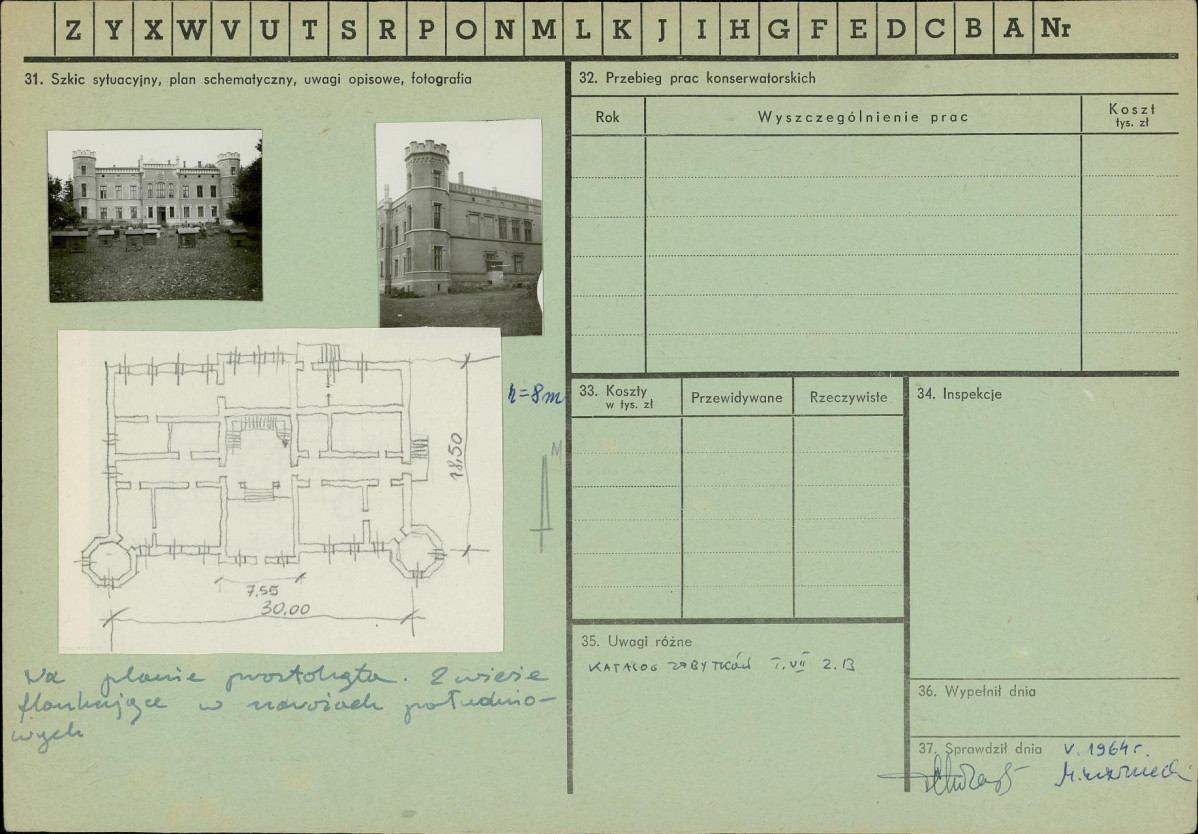 Z Y X W V U T S R P O N M L K J I H G F E D C B A Nr
31. Szkic sytuacyjny, plan schematyczny, uwagi opisowe, fotografia
h=8m
N
18,50
7,55
30,00
Na planie prostokąta. 2 wieże
flankujące w narożach południo-
wych
32. Przebieg prac konserwatorskich
Rok
Wyszczególnienie prac
Koszt
tys. zł
33. Koszty
w tys. zł
Przewidywane
Rzeczywiste
34. Inspekcje
35. Uwagi różne
KATALOG ZABYTKÓW T. VII Z. 13
36. Wypełnił dnia
37. Sprawdził dnia V. 1964 r.